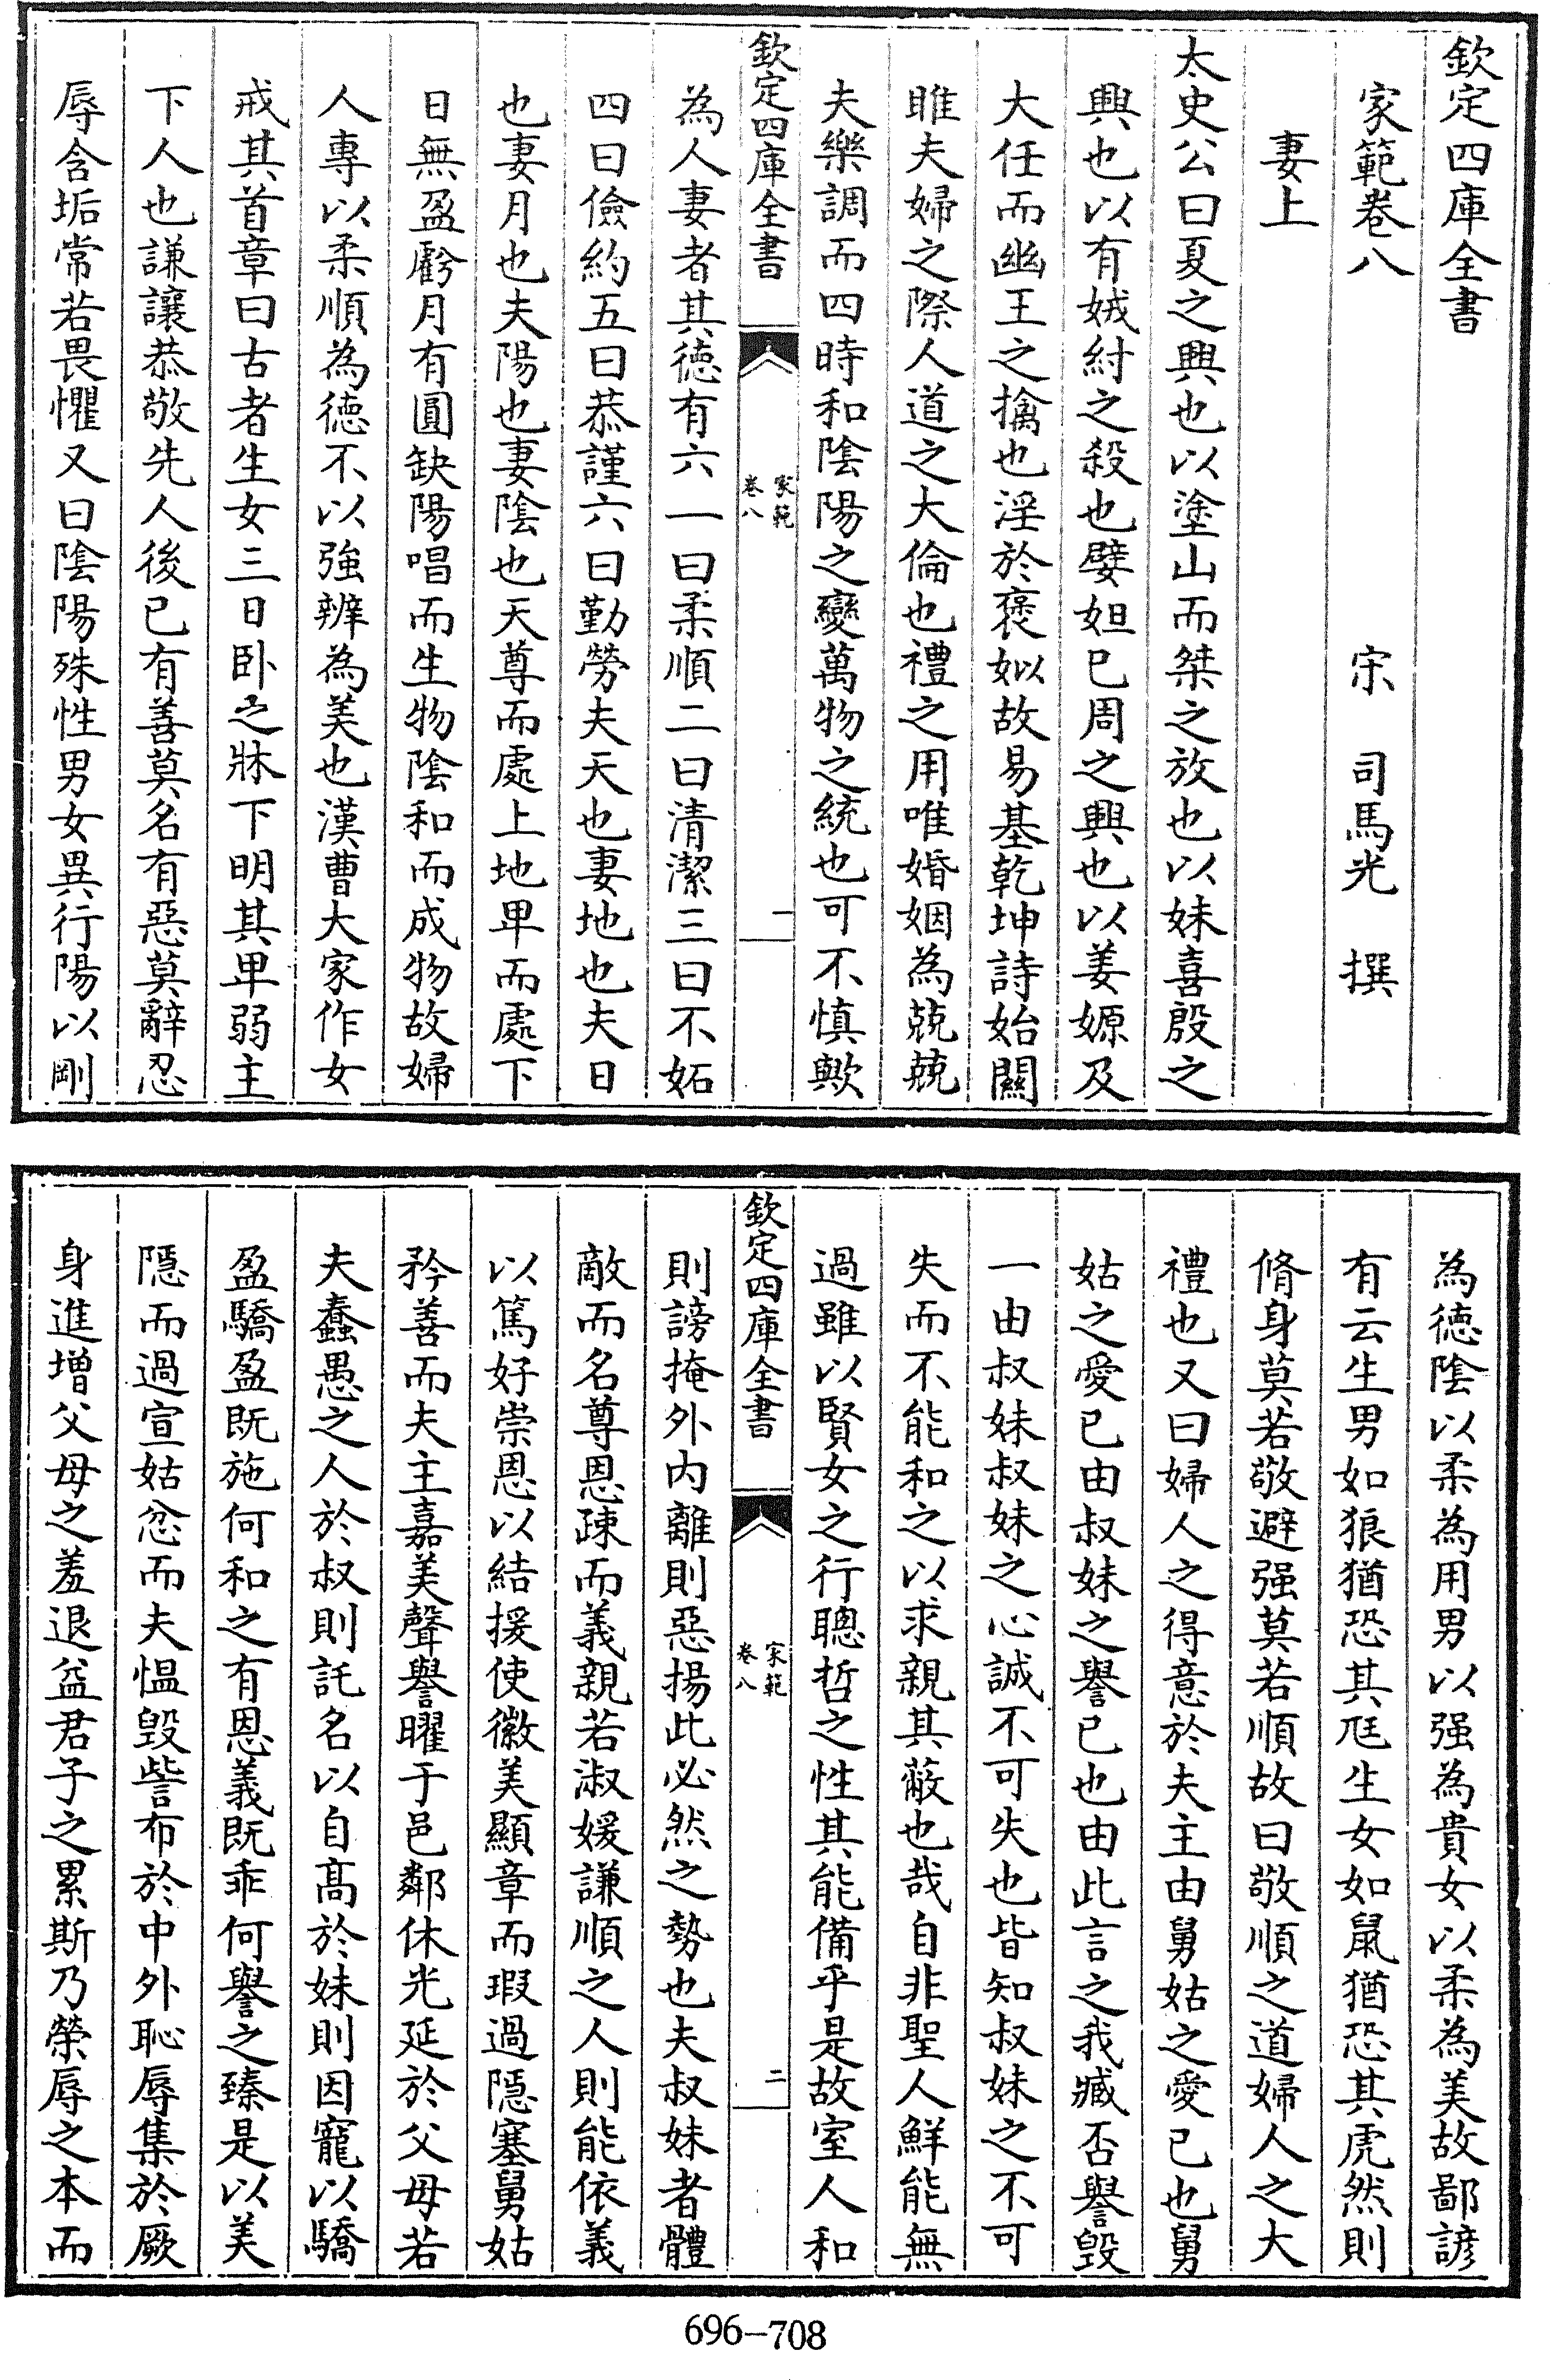 欽定四庫全書
家範卷八
宋 司馬光 撰
妻上
太史公曰夏之興也以塗山而桀之放也以妺喜殷之
興也以有娀紂之殺也嬖妲已周之興也以姜嫄及
大任而幽王之擒也淫於褒姒故易基乾坤詩始關
雎夫婦之際人道之大倫也禮之用唯婚姻為兢兢
夫樂調而四時和陰陽之變萬物之統也可不慎歟
欽定四庫全書
家範
卷八
一
為人妻者其徳有六一曰柔順二曰清潔三曰不妬
四曰儉約五曰恭謹六曰勤勞夫天也妻地也夫日
也妻月也夫陽也妻陰也天尊而處上地卑而處下
日無盈虧月有圓缺陽唱而生物陰和而成物故婦
人專以柔順為徳不以強辨為美也漢曹大家作女
戒其首章曰古者生女三日卧之牀下明其卑弱主
下人也謙讓恭敬先人後已有善莫名有惡莫辭忍
辱含垢常若畏懼又曰陰陽殊性男女異行陽以剛
為徳陰以柔為用男以强為貴女以柔為美故鄙諺
有云生男如狼猶恐其尫生女如鼠猶恐其虎然則
脩身莫若敬避强莫若順故曰敬順之道婦人之大
禮也又曰婦人之得意於夫主由舅姑之愛已也舅
姑之愛已由叔妹之譽已也由此言之我臧否譽毀
一由叔妹叔妹之心誠不可失也皆知叔妹之不可
失而不能和之以求親其蔽也哉自非聖人鮮能無
過雖以賢女之行聰哲之性其能備乎是故室人和
欽定四庫全書
家範
卷八
二
則謗掩外内離則惡揚此必然之勢也夫叔妹者體
敵而名尊恩疎而義親若淑媛謙順之人則能依義
以篤好崇恩以結援使徽美顯章而瑕過隱塞舅姑
矜善而夫主嘉美聲譽曜于邑鄰休光延於父母若
夫蠢愚之人於叔則託名以自髙於妹則因寵以驕
盈驕盈既施何和之有恩義既乖何譽之臻是以美
隱而過宣姑忿而夫愠毀訾布於中外恥辱集於厥
身進增父母之羞退益君子之累斯乃榮辱之本而
696-708